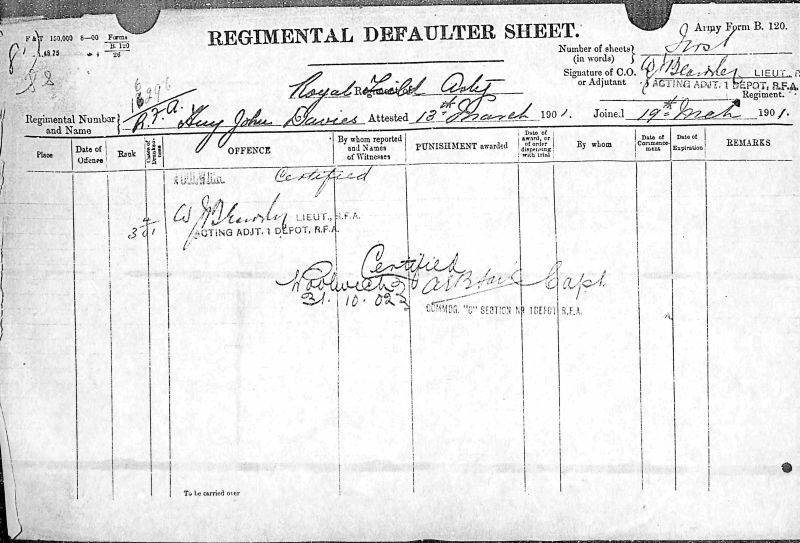 F & T 150,000 8—00 Forms
B. 120
26
REGIMENTAL DEFAULTER SHEET.
Army Form B. 120.
Number of sheets
(in words)
First
Signature of C.O.
or Adjutant
LIEUT. R.F.A.
ACTING ADJT. 1 DEPOT, R.F.A.
Regiment.
Royal Field Arty
Regimental Number
and Name
R.F.A.
John Davies Attested 13th March 1901. Joined 19th Mch 1901.
Place
Date of Offence
Rank
Cases of Drunkenness
OFFENCE
By whom reported and Names of Witnesses
PUNISHMENT awarded
Date of award, or of order dispensing with trial
By whom
Date of Commencement
Date of Expiration
REMARKS
Certified
LIEUT., R.F.A.
ACTING ADJT. 1 DEPOT, R.F.A.
Certified
Woolwich
31.10.02
Capt.
COMMDG. "C" SECTION No 1 DEPOT R.F.A.
To be carried over